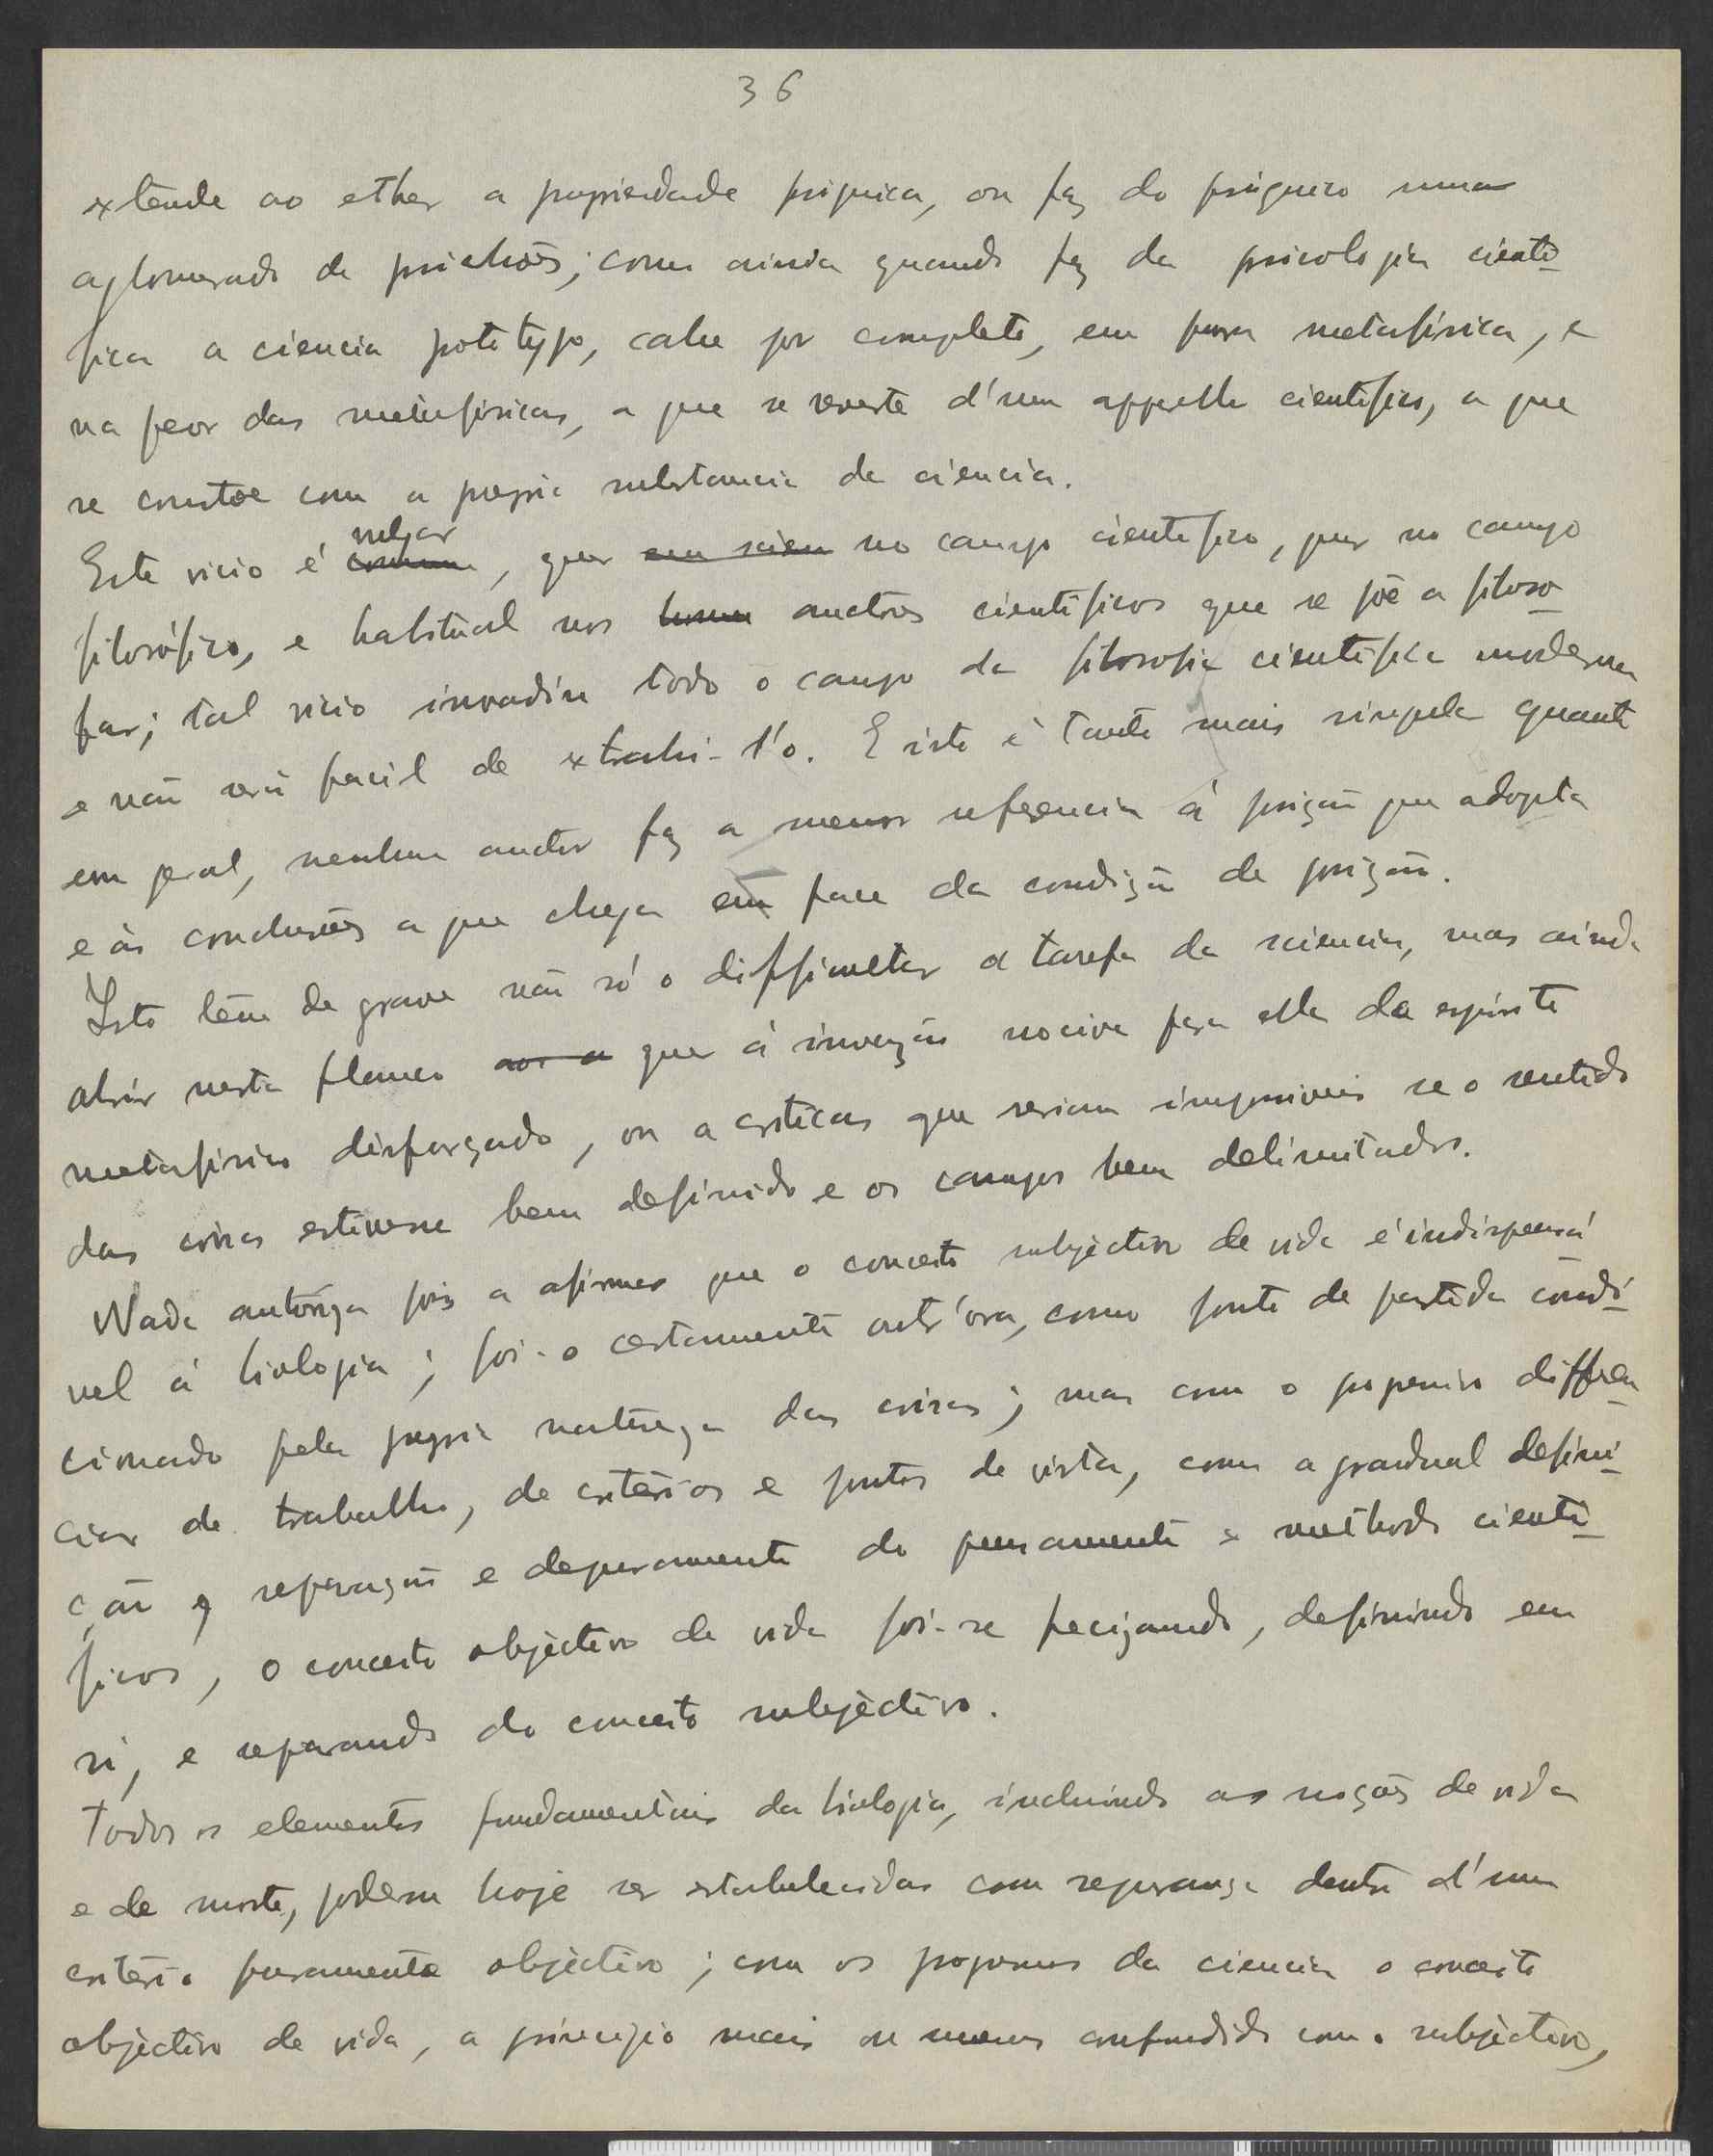 36
extende ao ether a propriedade psiquica, ou faz do psiquico uma
aglomerado de psichões; como ainda quando faz da psicologia cienti-
fica a ciencia prototypo, cahe por completo, em pura metafisica, e
na peor das metafisicas, a que se reveste d'um apparelho cientifico, a que
se constroe com a propria substancia da ciencia.
Este vicio é commum vulgar, quer em scien no campo cientifico, quer no campo
filosófico, e habitual nos auctores cientificos que se põe a filoso-
far; tal vicio invadiu todo o campo da filosofia cientifica moderna
e não será facil de extrahi-l'o. E isto é tanto mais singular quanto
em geral, nenhum auctor faz a menor referencia á posição que adopta
e ás conclusões a que chega em face da condição de posição.
Isto têm de grave não só o difficultar a tarefa da sciencia, mas ainda
abrir neste flanco quer á invenção nociva para ella do espirito
metafisico disfarçado, ou a criticas que seriam impossiveis se o sentido
das coisas estivesse bem definido e os campos bem delimitados.
Nada autoriza pois a afirmar que o conceito subjectivo de vida é indispensá-
vel á biologia; foi-o certamente outr'ora, como ponto de partida condi-
cionado pela propria natureza das coisas; mas com o progressivo differen-
ciar de trabalho, de critérios e pontos de vista, com a gradual defini-
ção e separação e depuramento do pensamento e methodo cienti-
ficos, o conceito objectivo de vida foi-se precizando, definindo em
si, e separando do conceito subjectivo.
Todos os elementos fundamentais da biologia, incluindo as noções de vida
e de morte, podem hoje ser estabelecidas com segurança dentro d'um
critério puramente objectivo; com os progressos da ciencia o conceito
objectivo de vida, a principio mais ou menos confundido com o subjectivo,